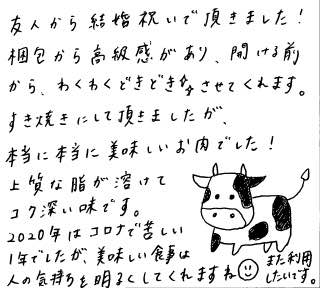 友人から結婚祝いで頂きました！
梱包から高級感があり、開ける前
から、わくわくどきどきさせてくれます。
すき焼きにして頂きましたが、
本当に本当に美味しいお肉でした！
上質な脂が溶けて
コク深い味です。
2020年はコロナで苦しい
1年でしたが、美味しい食事は
人の気持ちを明るくしてくれますね
また利用
したいです。